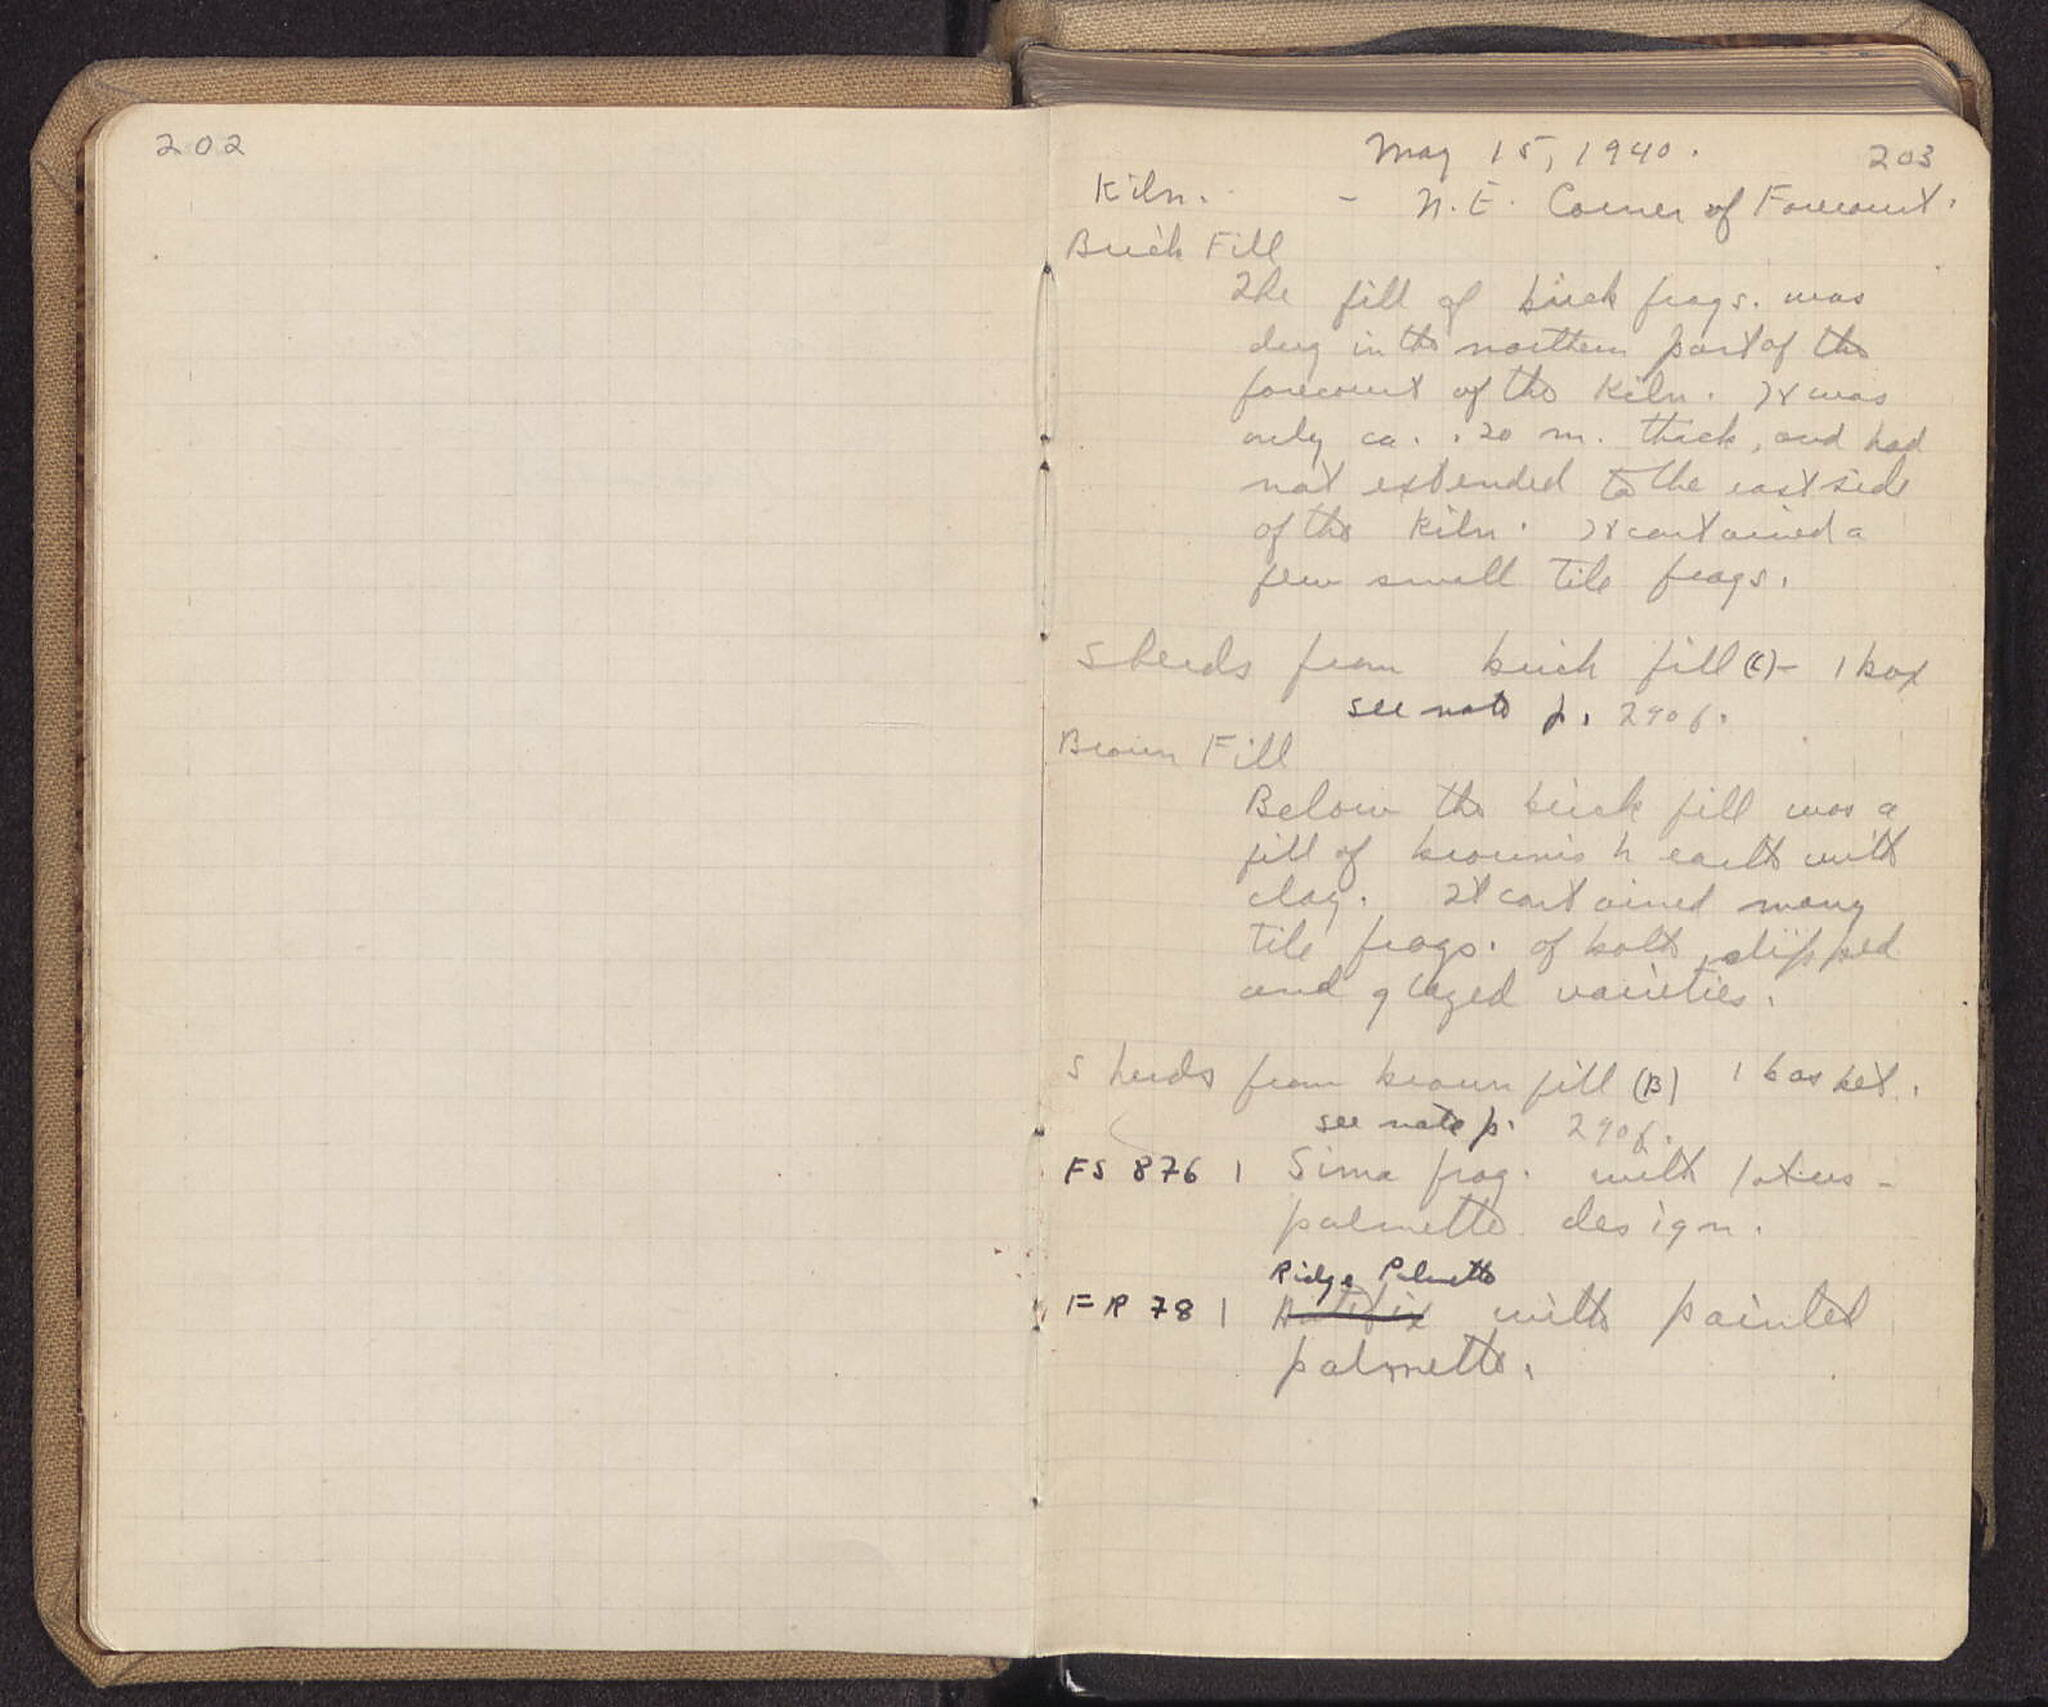 202
May 15, 1940. 203
Kiln. - N.E. Corner of Forecourt.
Brick Fill
The fill of brick frags. was
dug in the northern part of the
forecourt of the Kiln. It was
only ca. .20 m. thick, and had
not extended to the east side
of the Kiln. It contained a
few small tile frags.
Sherds from brick fill (C) - 1 box
see note p. 290 f.
Brown Fill
Below the brick fill was a
fill of brownish earth with
clay. It contained many
tile frags. of both slipped
and glazed varieties.
Sherds from brown fill (B) 1 basket.
see note p. 290 f.
FS 876 1 Sima frag. with lotus-
palmette design.
Ridge Palmette
FR 78 1 Antefix with painted
palmette.